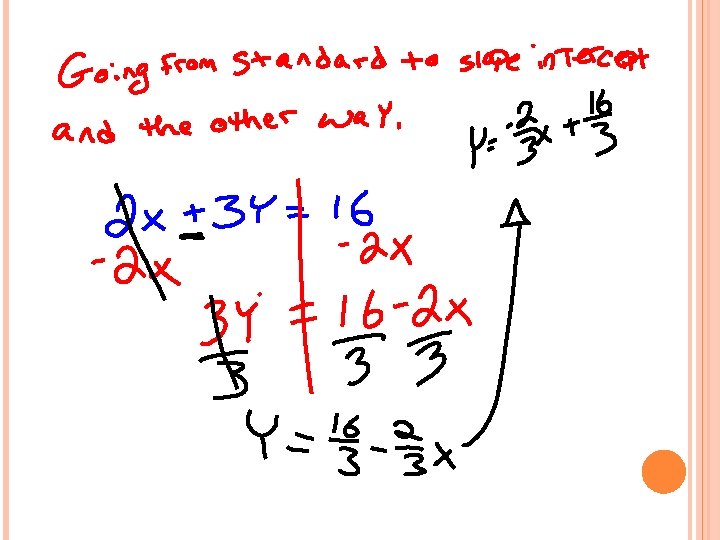 Going from standard to slope intercept
and the other way.
y = -2/3 x + 16/3
2x + 3y = 16
-2x -2x
3y = 16 - 2x
3 3 3
y = 16/3 - 2/3 x